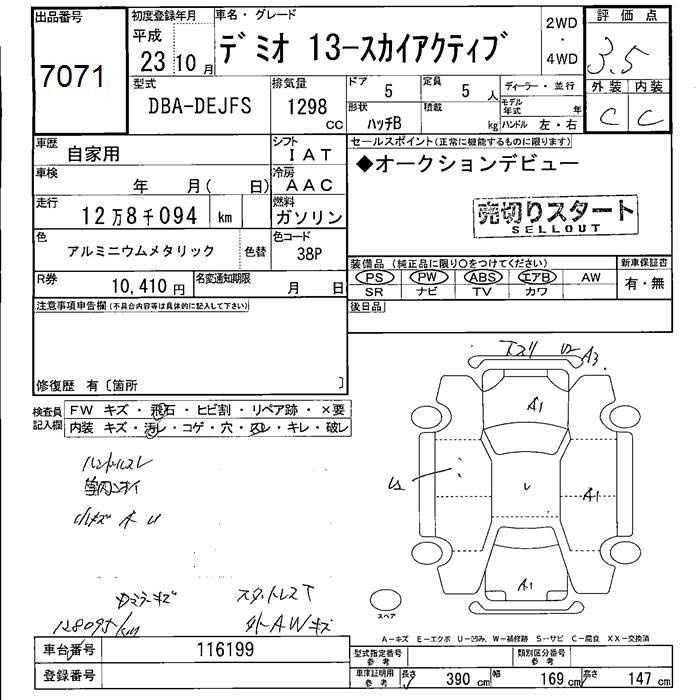 出品番号
7071
初度登録年月
平成
23 10 月
車名・グレード
デミオ 13-スカイアクティブ
2WD
・
4WD
評価点
3.5
外装 内装
C C
型式
DBA-DEJFS
排気量
1298
CC
ドア
5
定員
5 人
形状
ハッチB
積載
kg
ディーラー・並行
モデル年式 年
ハンドル 左・右
車歴
自家用
シフト
IAT
車検
年 月( 日)
冷房
AAC
走行
12万8千094 km
燃料
ガソリン
色
アルミニウムメタリック
色替
色コード
38P
R券
10,410 円
名変通知期限
月 日
セールスポイント(正常に機能するものに限ります)
◆オークションデビュー
売切りスタート
SELLOUT
装備品 (純正品に限り○をつけてください)
PS PW ABS エアB AW
SR ナビ TV カワ
新車保証書
有・無
後日品
注意事項申告欄(不具合内容等は具体的に記入して下さい)
修復歴 有〔箇所 〕
検査員
記入欄
FW キズ・飛石・ヒビ割・リペア跡・×要
内装 キズ・汚レ・コゲ・穴・スレ・キレ・破レ
ハンドルスレ
小キズ
キズ
128095km
スタットレスT
AWキズ
A3
A1
A1
A1
スペア
A-キズ E-エクボ U-凹み、W-補修跡 S-サビ C-腐食 XX-交換済
車台番号
116199
登録番号
型式指定番号
参考
類別区分番号
参考
車庫証明用
参考
長さ 390 cm 幅 169 cm 高さ 147 cm